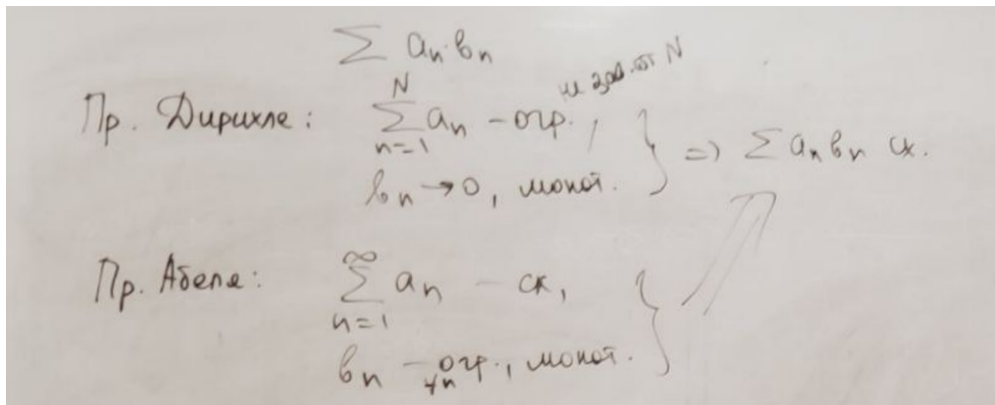 ∑ aₙ·вₙ
Пр. Дирихле: ∑ₙ₌₁ᴺ aₙ – огр., не зав. от N
вₙ → 0, монот. } ⇒ ∑ aₙ вₙ сх.
Пр. Абеля: ∑ₙ₌₁^∞ aₙ – сх,
вₙ – огр., монот. }
∀n